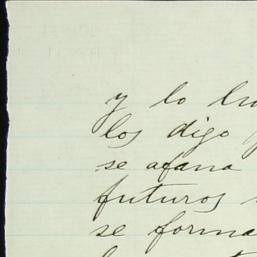 y lo
los digo
se afana
futuros
se forma